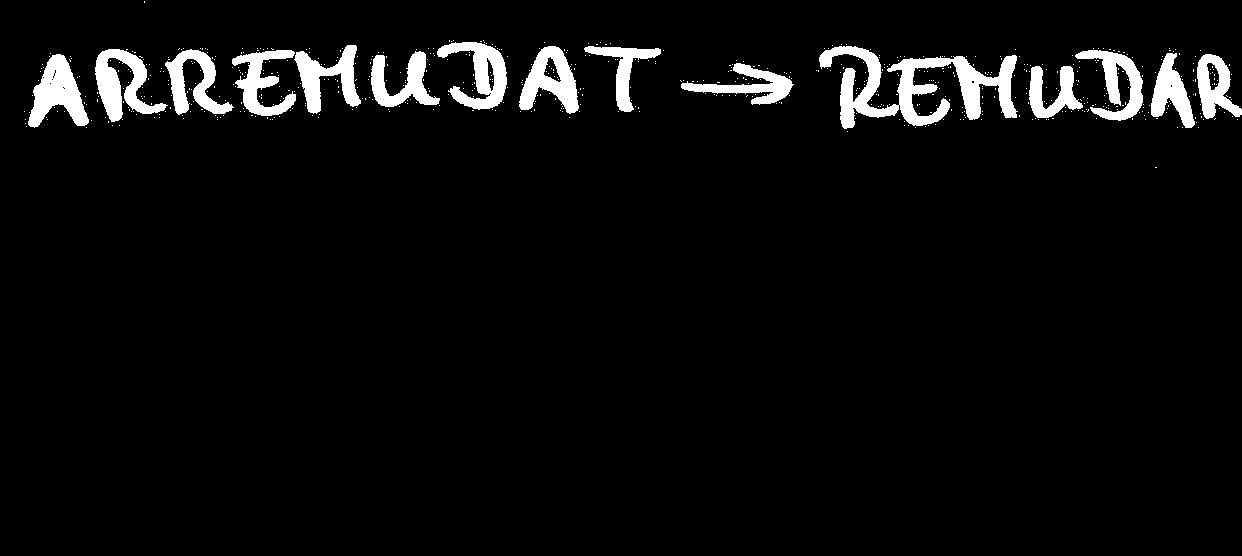 ARREMUDAT → REMUDAR